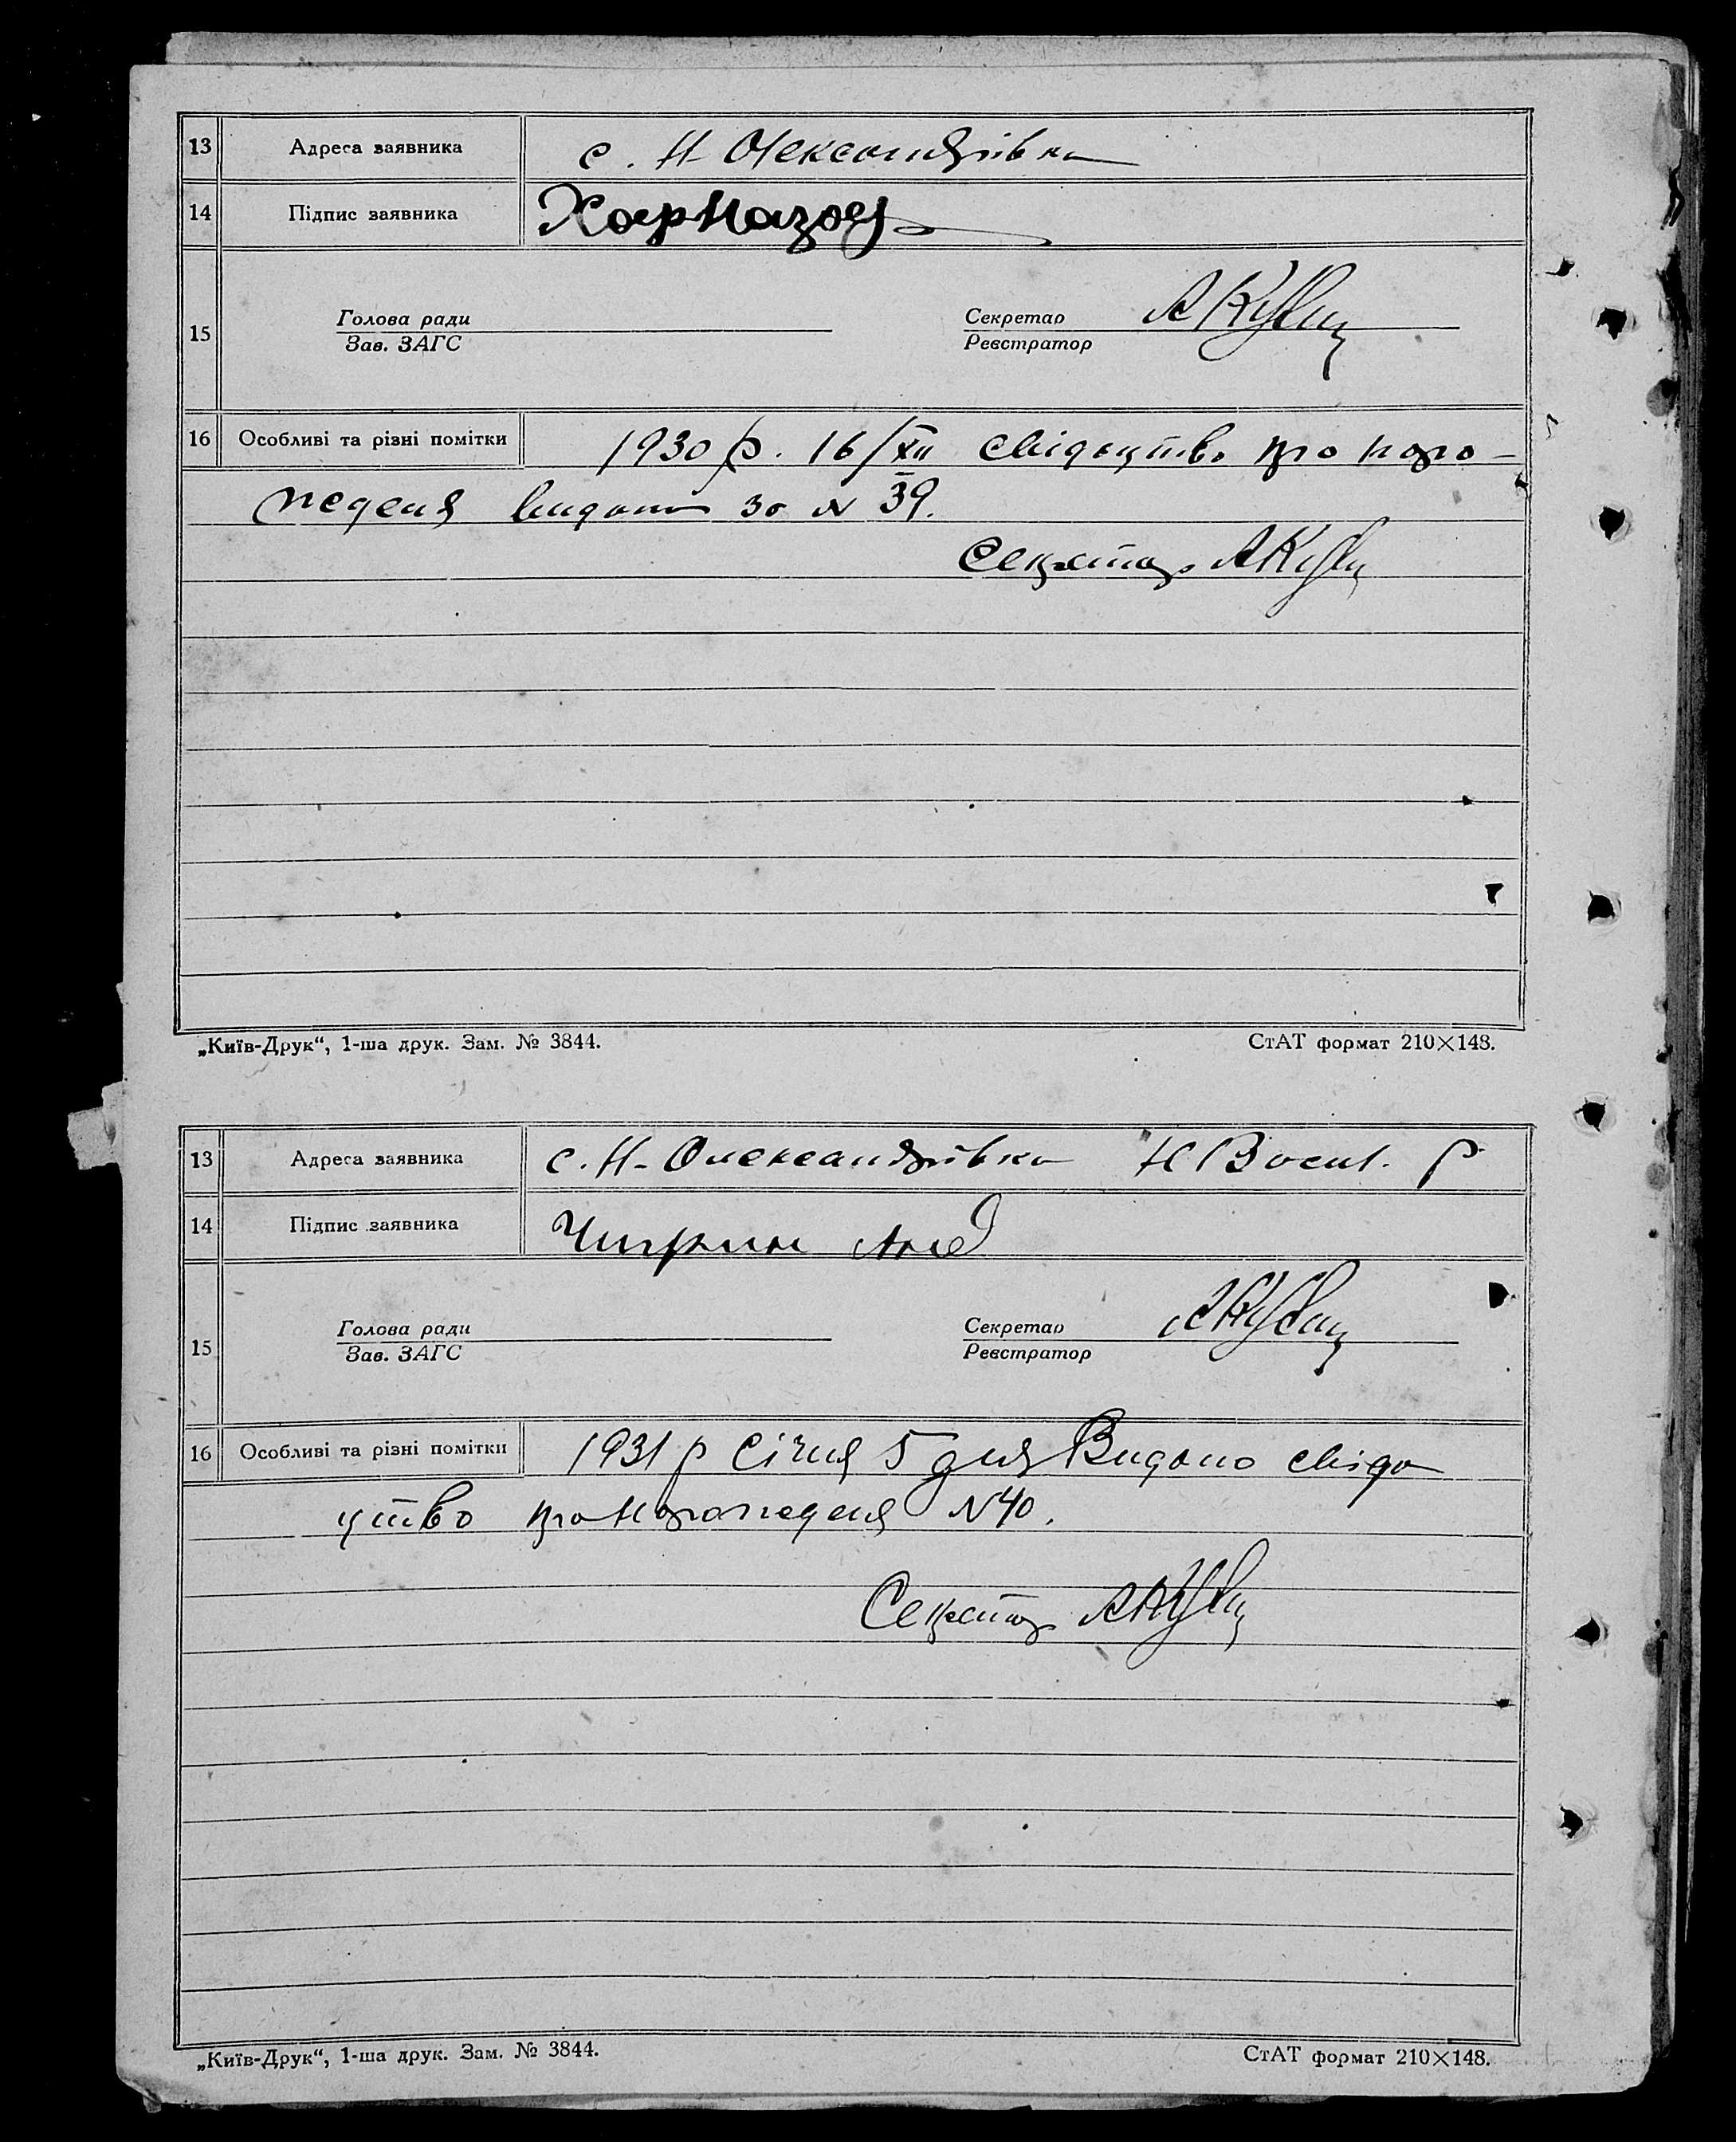 13 Адреса заявника с. Н-Олександрівка
14 Підпис заявника
15 Голова ради Секретар
Зав. ЗАГС Реєстратор
16 Особливі та різні помітки 1930 р. 16/XII свідоцтво про наро-
дженя видано за N 39.
Секретар
„Київ-Друк“, 1-ша друк. Зам. № 3844. СтАТ формат 210×148.
13 Адреса заявника с. Н-Олександрівка Р
14 Підпис заявника
15 Голова ради Секретар
Зав. ЗАГС Реєстратор
16 Особливі та різні помітки 1931 р Січня 5 дня Видано свідо
цтво про народженя N 40.
Секретар
„Київ-Друк“, 1-ша друк. Зам. № 3844. СтАТ формат 210×148.